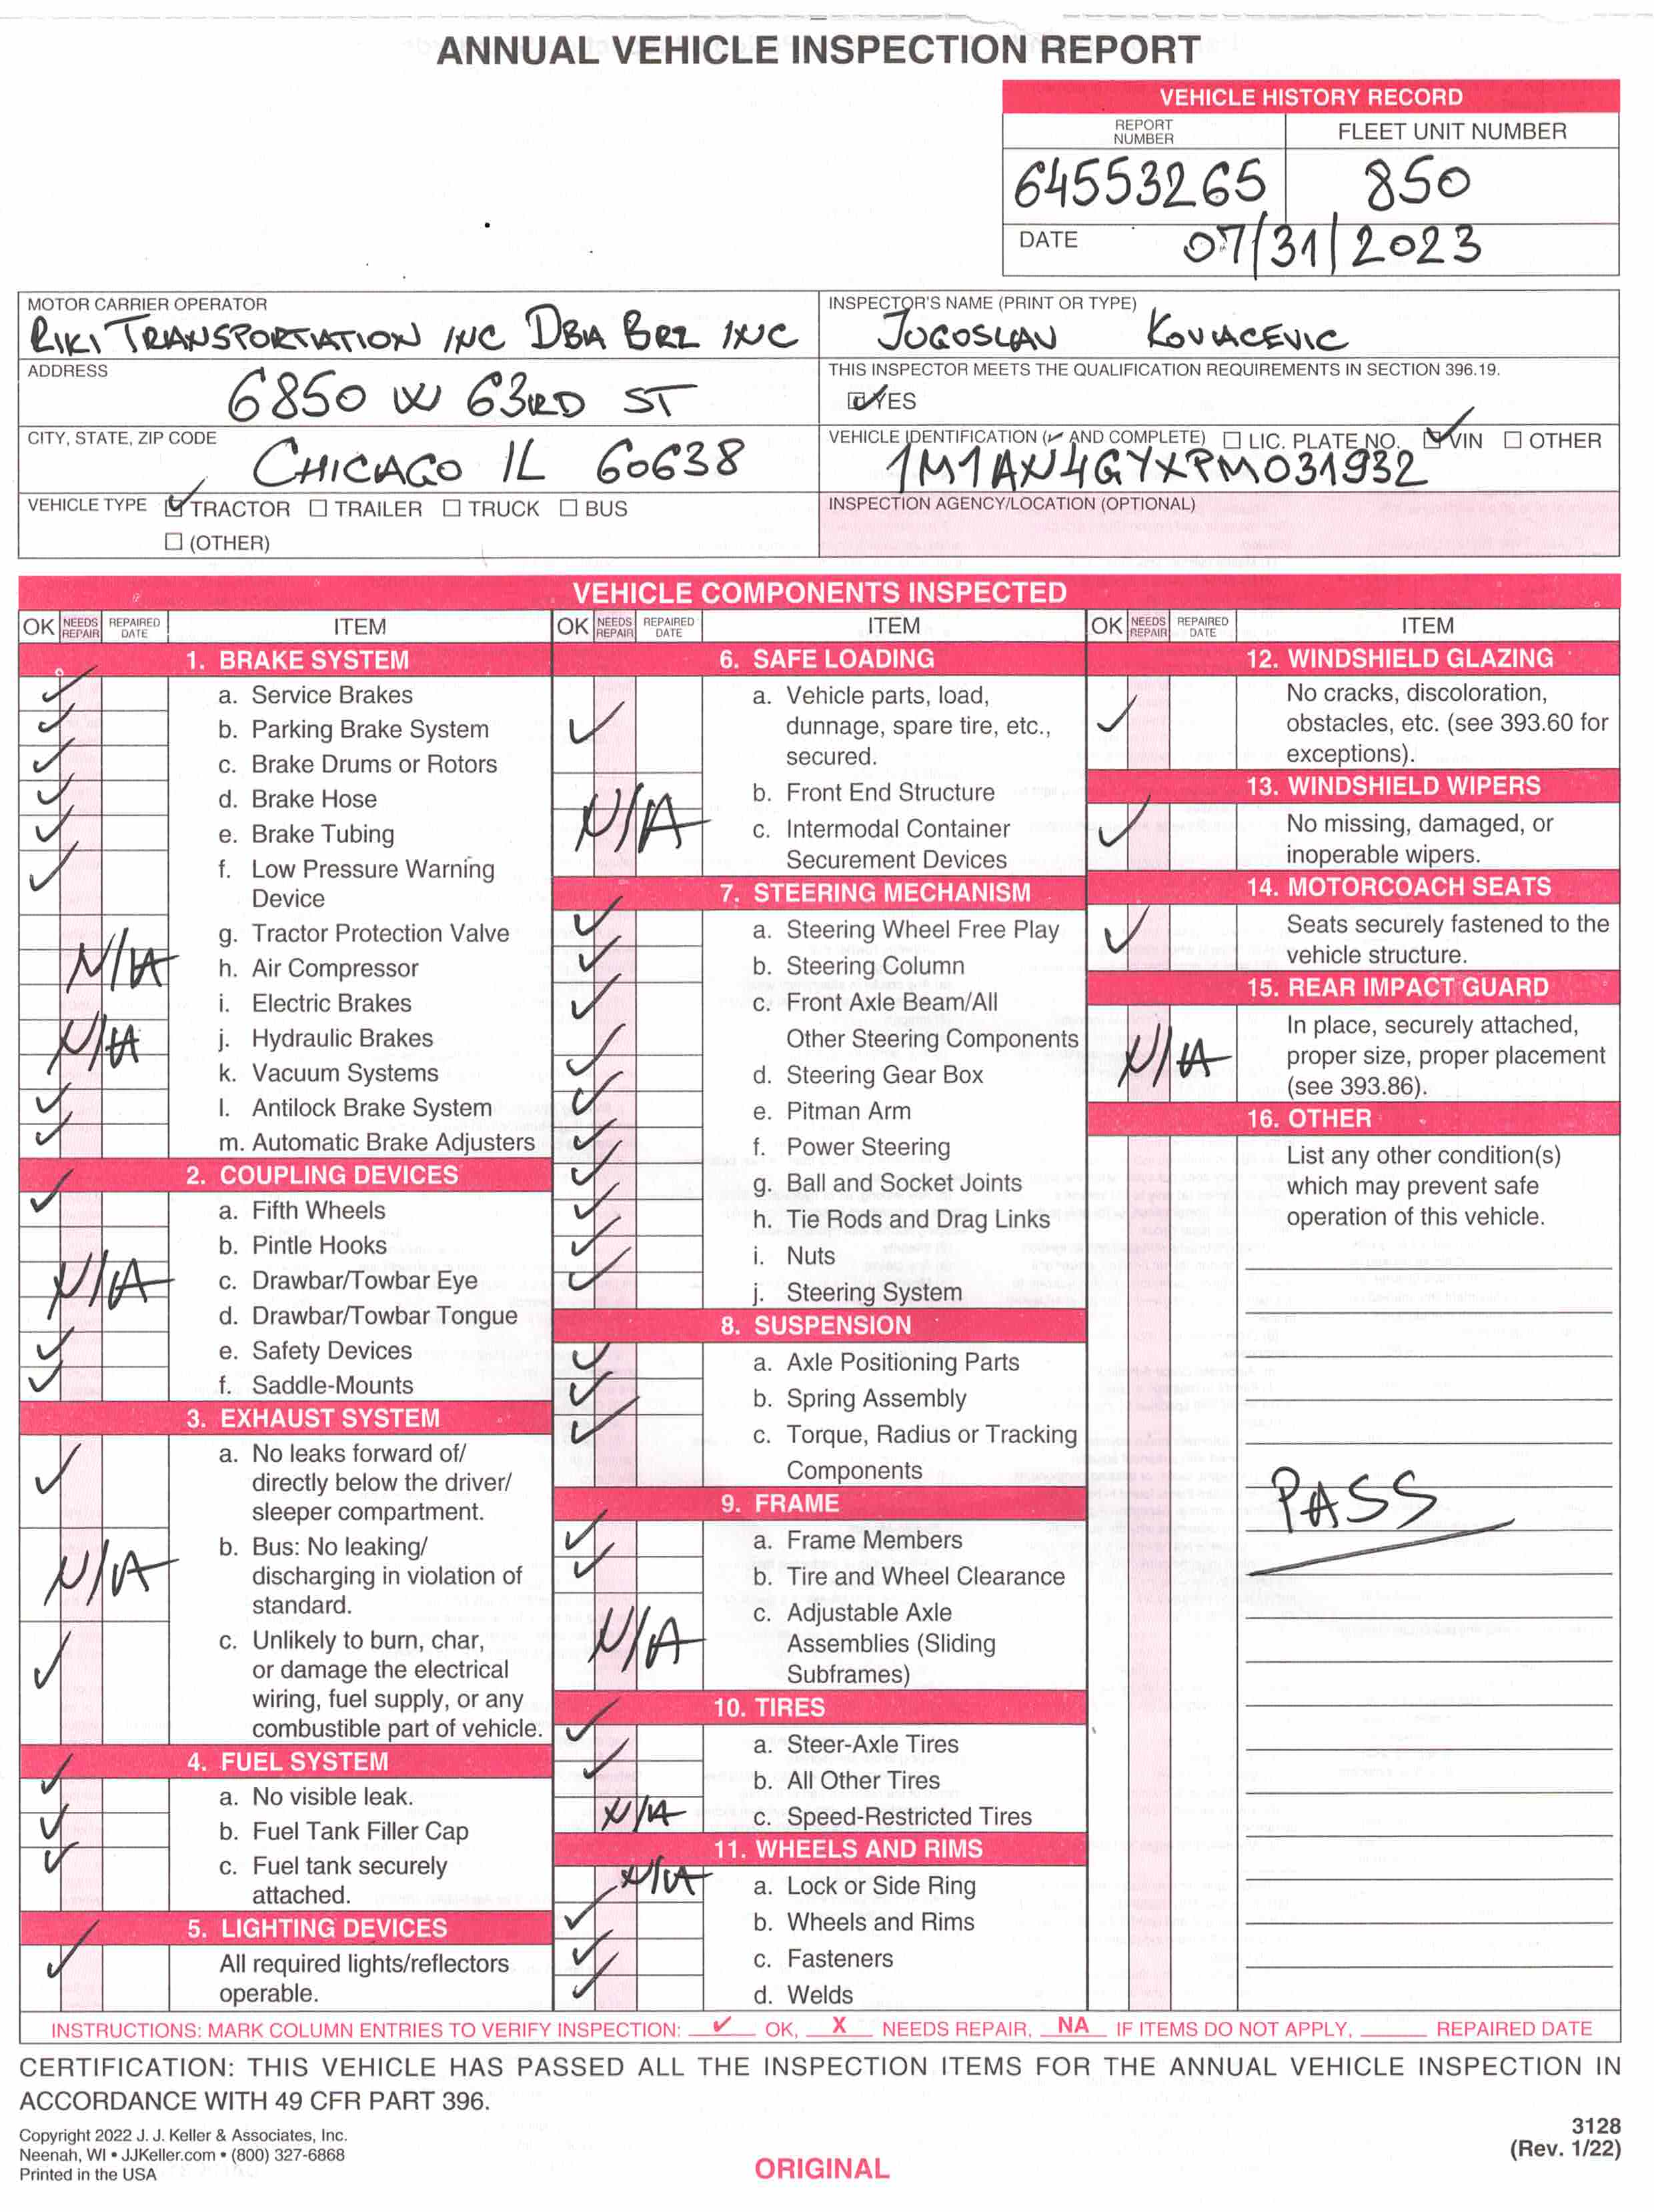 ANNUAL VEHICLE INSPECTION REPORT
VEHICLE HISTORY RECORD
REPORT NUMBER
FLEET UNIT NUMBER
64553265
850
DATE 07/31/2023
MOTOR CARRIER OPERATOR
RIKI TRANSPORTATION INC DBA BRZ INC
INSPECTOR'S NAME (PRINT OR TYPE)
JUGOSLAV KOVACEVIC
ADDRESS
6850 W 63RD ST
THIS INSPECTOR MEETS THE QUALIFICATION REQUIREMENTS IN SECTION 396.19.
☑ YES
CITY, STATE, ZIP CODE
CHICAGO IL 60638
VEHICLE IDENTIFICATION (✓ AND COMPLETE) ☐ LIC. PLATE NO. ☑ VIN ☐ OTHER
1M1AN4GYXPM031932
VEHICLE TYPE ☑ TRACTOR ☐ TRAILER ☐ TRUCK ☐ BUS
☐ (OTHER)
INSPECTION AGENCY/LOCATION (OPTIONAL)
VEHICLE COMPONENTS INSPECTED
OK NEEDS REPAIR REPAIRED DATE ITEM
1. BRAKE SYSTEM
✓ a. Service Brakes
✓ b. Parking Brake System
✓ c. Brake Drums or Rotors
✓ d. Brake Hose
✓ e. Brake Tubing
✓ f. Low Pressure Warning
Device
g. Tractor Protection Valve
N/A h. Air Compressor
i. Electric Brakes
N/A j. Hydraulic Brakes
k. Vacuum Systems
✓ l. Antilock Brake System
✓ m. Automatic Brake Adjusters
2. COUPLING DEVICES
✓ a. Fifth Wheels
b. Pintle Hooks
N/A c. Drawbar/Towbar Eye
d. Drawbar/Towbar Tongue
✓ e. Safety Devices
✓ f. Saddle-Mounts
3. EXHAUST SYSTEM
✓ a. No leaks forward of/
directly below the driver/
sleeper compartment.
N/A b. Bus: No leaking/
discharging in violation of
standard.
✓ c. Unlikely to burn, char,
or damage the electrical
wiring, fuel supply, or any
combustible part of vehicle.
4. FUEL SYSTEM
✓ a. No visible leak.
✓ b. Fuel Tank Filler Cap
✓ c. Fuel tank securely
attached.
5. LIGHTING DEVICES
✓ All required lights/reflectors
operable.
OK NEEDS REPAIR REPAIRED DATE ITEM
6. SAFE LOADING
✓ a. Vehicle parts, load,
dunnage, spare tire, etc.,
secured.
b. Front End Structure
N/A c. Intermodal Container
Securement Devices
7. STEERING MECHANISM
✓ a. Steering Wheel Free Play
✓ b. Steering Column
✓ c. Front Axle Beam/All
Other Steering Components
✓ d. Steering Gear Box
✓ e. Pitman Arm
✓ f. Power Steering
✓ g. Ball and Socket Joints
✓ h. Tie Rods and Drag Links
✓ i. Nuts
✓ j. Steering System
8. SUSPENSION
✓ a. Axle Positioning Parts
✓ b. Spring Assembly
✓ c. Torque, Radius or Tracking
Components
9. FRAME
✓ a. Frame Members
✓ b. Tire and Wheel Clearance
N/A c. Adjustable Axle
Assemblies (Sliding
Subframes)
10. TIRES
✓ a. Steer-Axle Tires
✓ b. All Other Tires
N/A c. Speed-Restricted Tires
11. WHEELS AND RIMS
N/A a. Lock or Side Ring
✓ b. Wheels and Rims
✓ c. Fasteners
✓ d. Welds
OK NEEDS REPAIR REPAIRED DATE ITEM
12. WINDSHIELD GLAZING
✓ No cracks, discoloration,
obstacles, etc. (see 393.60 for
exceptions).
13. WINDSHIELD WIPERS
✓ No missing, damaged, or
inoperable wipers.
14. MOTORCOACH SEATS
✓ Seats securely fastened to the
vehicle structure.
15. REAR IMPACT GUARD
N/A In place, securely attached,
proper size, proper placement
(see 393.86).
16. OTHER
List any other condition(s)
which may prevent safe
operation of this vehicle.
PASS
INSTRUCTIONS: MARK COLUMN ENTRIES TO VERIFY INSPECTION: ✓ OK, X NEEDS REPAIR, NA IF ITEMS DO NOT APPLY, ____ REPAIRED DATE
CERTIFICATION: THIS VEHICLE HAS PASSED ALL THE INSPECTION ITEMS FOR THE ANNUAL VEHICLE INSPECTION IN
ACCORDANCE WITH 49 CFR PART 396.
Copyright 2022 J. J. Keller & Associates, Inc.
Neenah, WI • JJKeller.com • (800) 327-6868
Printed in the USA
ORIGINAL
3128
(Rev. 1/22)